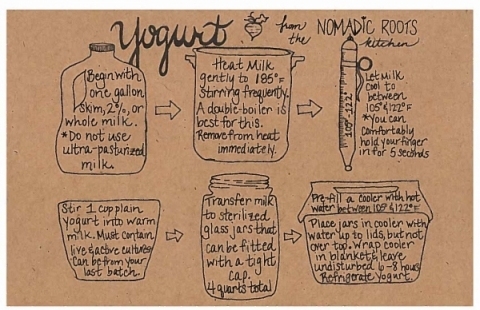 Yogurt from the NOMADIC ROOTS kitchen
Begin with
one gallon
skim, 2%, or
whole milk.
*Do not use
ultra-pasturized
milk.
Heat Milk
gently to 185°F
stirring frequently.
A double-boiler is
best for this.
Remove from heat
immediately.
105°-122°F
Let Milk
cool to
between
105° & 122°F
*You can
comfortably
hold your finger
in for 5 seconds
Stir 1 cup plain
yogurt into warm
milk. Must contain
live & active cultures
can be from your
last batch.
Transfer milk
to sterilized
glass jars that
can be fitted
with a tight
cap.
4 quarts total
Pre-fill a cooler with hot
water between 105° & 122°F
Place jars in cooler with
water up to lids, but not
over top. Wrap cooler
in blanket & leave
undisturbed 6-8 hours
Refrigerate Yogurt.